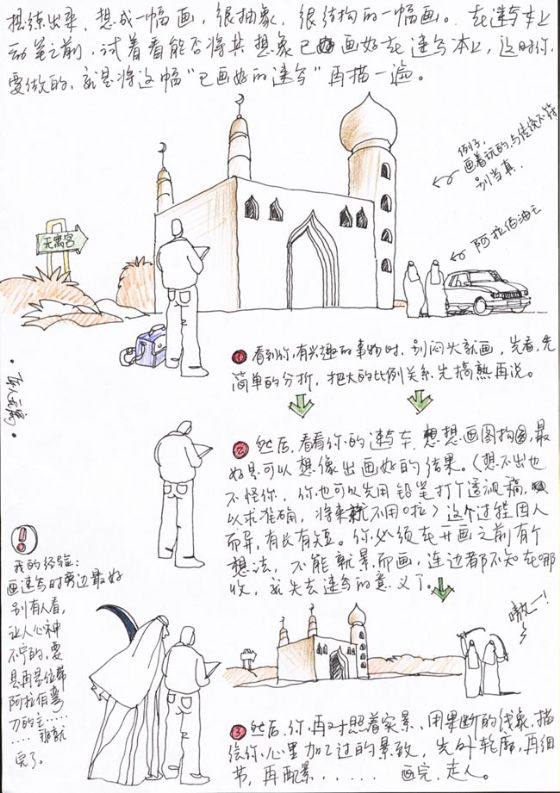 提练出来,想成一幅画,很抽象,很结构的一幅画。在速写本上
动笔之前,试着看能否将其想象已画好在速写本上,这时你
要做的,就是将这幅“已画好的速写”再描一遍。
例子,
画着玩的,与传统不符
别当真.
阿拉伯油王
无寓宫
❶ 看到你有兴趣的事物时,别闷头就画,先看,先
简单的分析,把大的比例关系先搞熟再说。
❷ 然后,看看你的速写本,想想画图构图,最
好是可以想像出画好的结果。(想不出也
不怪你,你也可以先用铅笔打个透视稿,
以求准确,将来就不用啦)这个过程因人
而异,有长有短。你必须在开画之前有个
想法,不能就景而画,连边都不知在哪
收,就失去速写的意义了。
!
我的经验:
画速写时旁边最好
别有人看,
让人心神
不宁的,要
是再是位带
阿拉伯弯
刀的主……
……
完了。
嗷~~!
❸ 然后,你再对照着实景,用果断的线条,描
绘你心里加工过的景致,先外轮廓,再细
节,再配景...... 画完,走人。